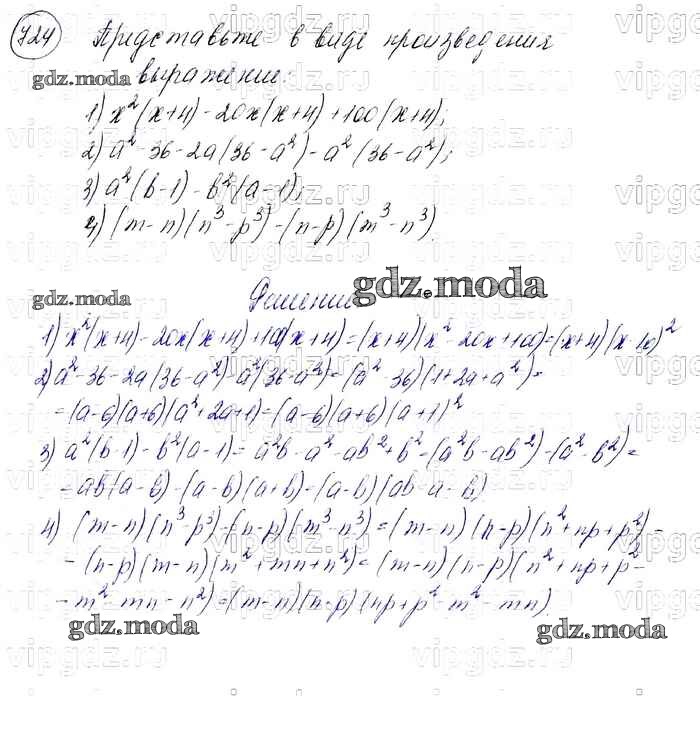 724 Представьте в виде произведения
выражение:
1) x²(x+4)-20x(x+4)+100(x+4);
2) a²-36-2a(36-a²)-a²(36-a²);
3) a²(b-1)-b²(a-1);
4) (m-n)(n³-p³)-(n-p)(m³-n³)
Решение
gdz.moda
1) x²(x+4)-20x(x+4)+100(x+4)=(x+4)(x²-20x+100)=(x+4)(x-10)²
2) a²-36-2a(36-a²)-a²(36-a²)=(a²-36)(1+2a+a²)=
=(a-6)(a+6)(a²+2a+1)=(a-6)(a+6)(a+1)²
3) a²(b-1)-b²(a-1)=a²b-a²-ab²+b²=(a²b-ab²)-(a²-b²)=
=ab(a-b)-(a-b)(a+b)=(a-b)(ab-a-b)
4) (m-n)(n³-p³)-(n-p)(m³-n³)=(m-n)(n-p)(n²+np+p²)-
-(n-p)(m-n)(m²+mn+n²)=(m-n)(n-p)(n²+np+p²-
-m²-mn-n²)=(m-n)(n-p)(np+p²-m²-mn)
gdz.moda
gdz.moda
gdz.moda
gdz.moda
vipgdz.ru